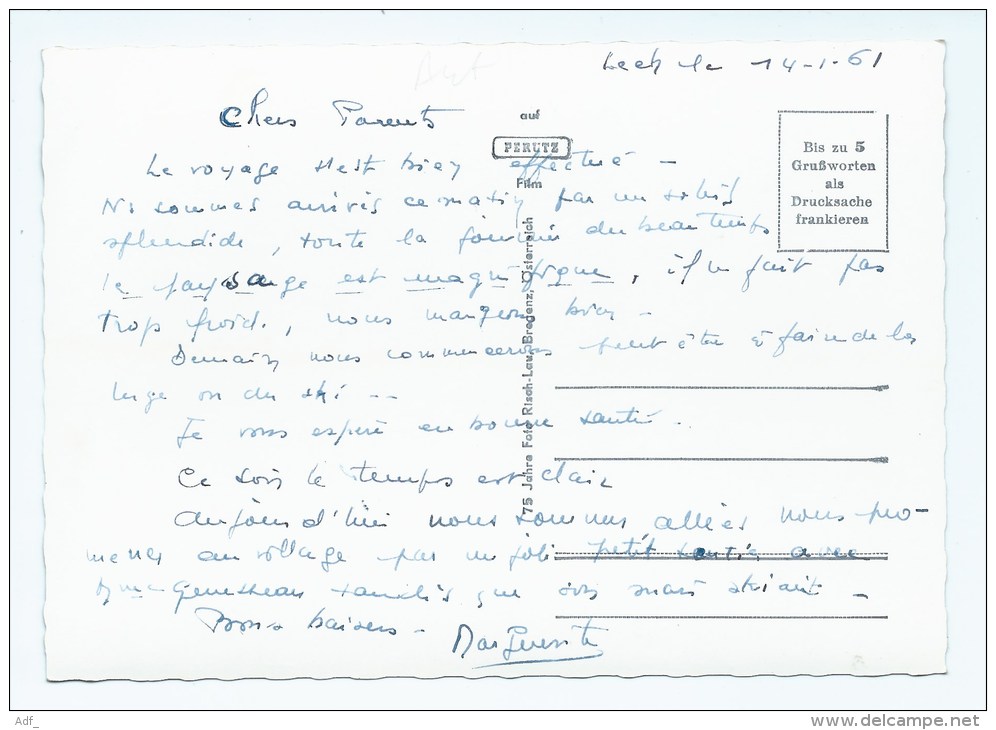 Lech le 14-1-61
Chers Parents
auf
PERUTZ
Film
Bis zu 5
Grußworten
als
Drucksache
frankieren
75 Jahre Foto Risch-Lau, Bregenz, Österreich
Le voyage s'est bien effectué -
Ns sommes arrivés ce matin par un soleil
splendide, toute la journée du beau temps
le paysage est magnifique, il n fait pas
trop froid, nous mangeons bien -
Demain nous commencerons peut être à faire de la
luge ou du ski --
Je vous espère en bonne santé -
Ce soir le temps est clair
Aujourd'hui nous sommes allées nous pro-
mener au village par un joli petit sentier avec
tandis que son mari skiait -
Bons baisers - Marguerite
Adf_
delcampe.net